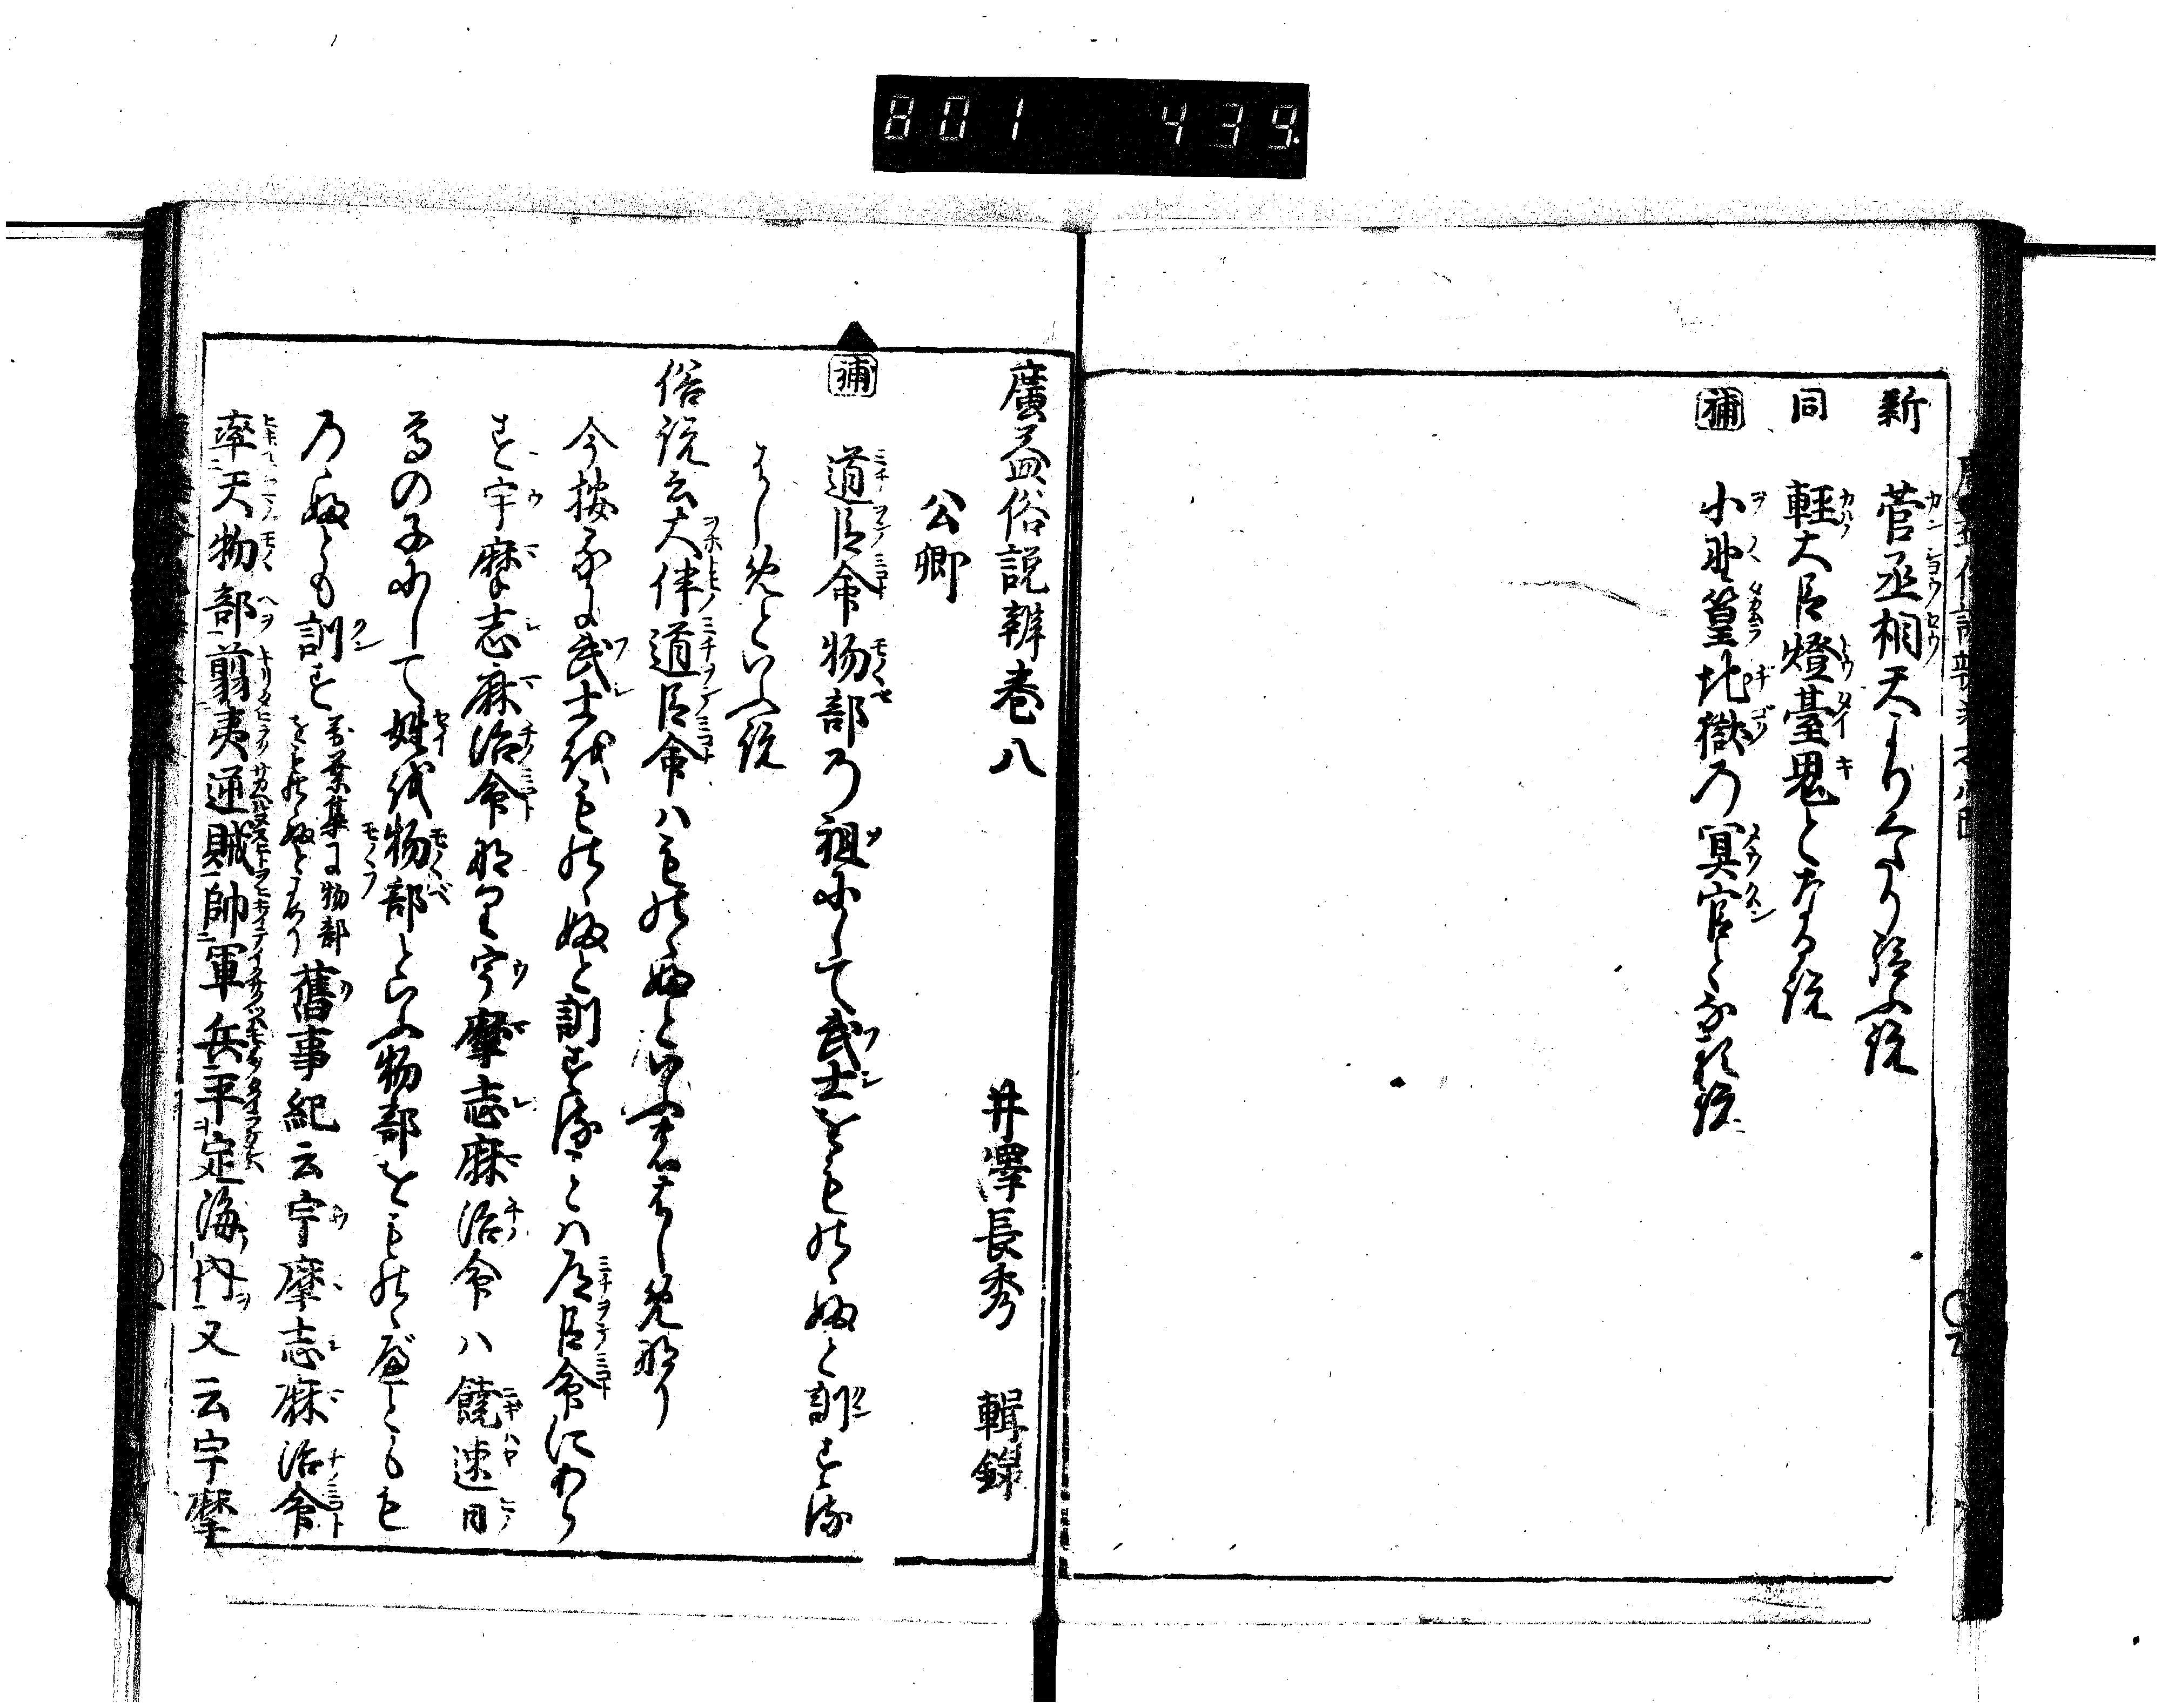 801 439
新 菅丞相天より今下り給ふ説
同 軽大臣燈臺鬼となる説
補 小野篁地獄の冥官となる説
廣益俗説辨巻八 井澤長秀 輯録
公卿
補 道臣命物部の祖にして武士をものゝふと訓する
はしめといふ説
俗説云大伴道臣命ハものゝふといふ者はしめ也
今按るに武士をものゝふと訓することハ道臣命にあら
す宇摩志麻治命なり宇摩志麻治命ハ饒速日
尊の子にして姓を物部といふ物部をものゝべともも
のゝふとも訓す 万葉集に物部をものゝふとよめり 舊事紀云宇摩志麻治命
率天物部翦夷逆賊帥軍兵平定海内又云宇摩